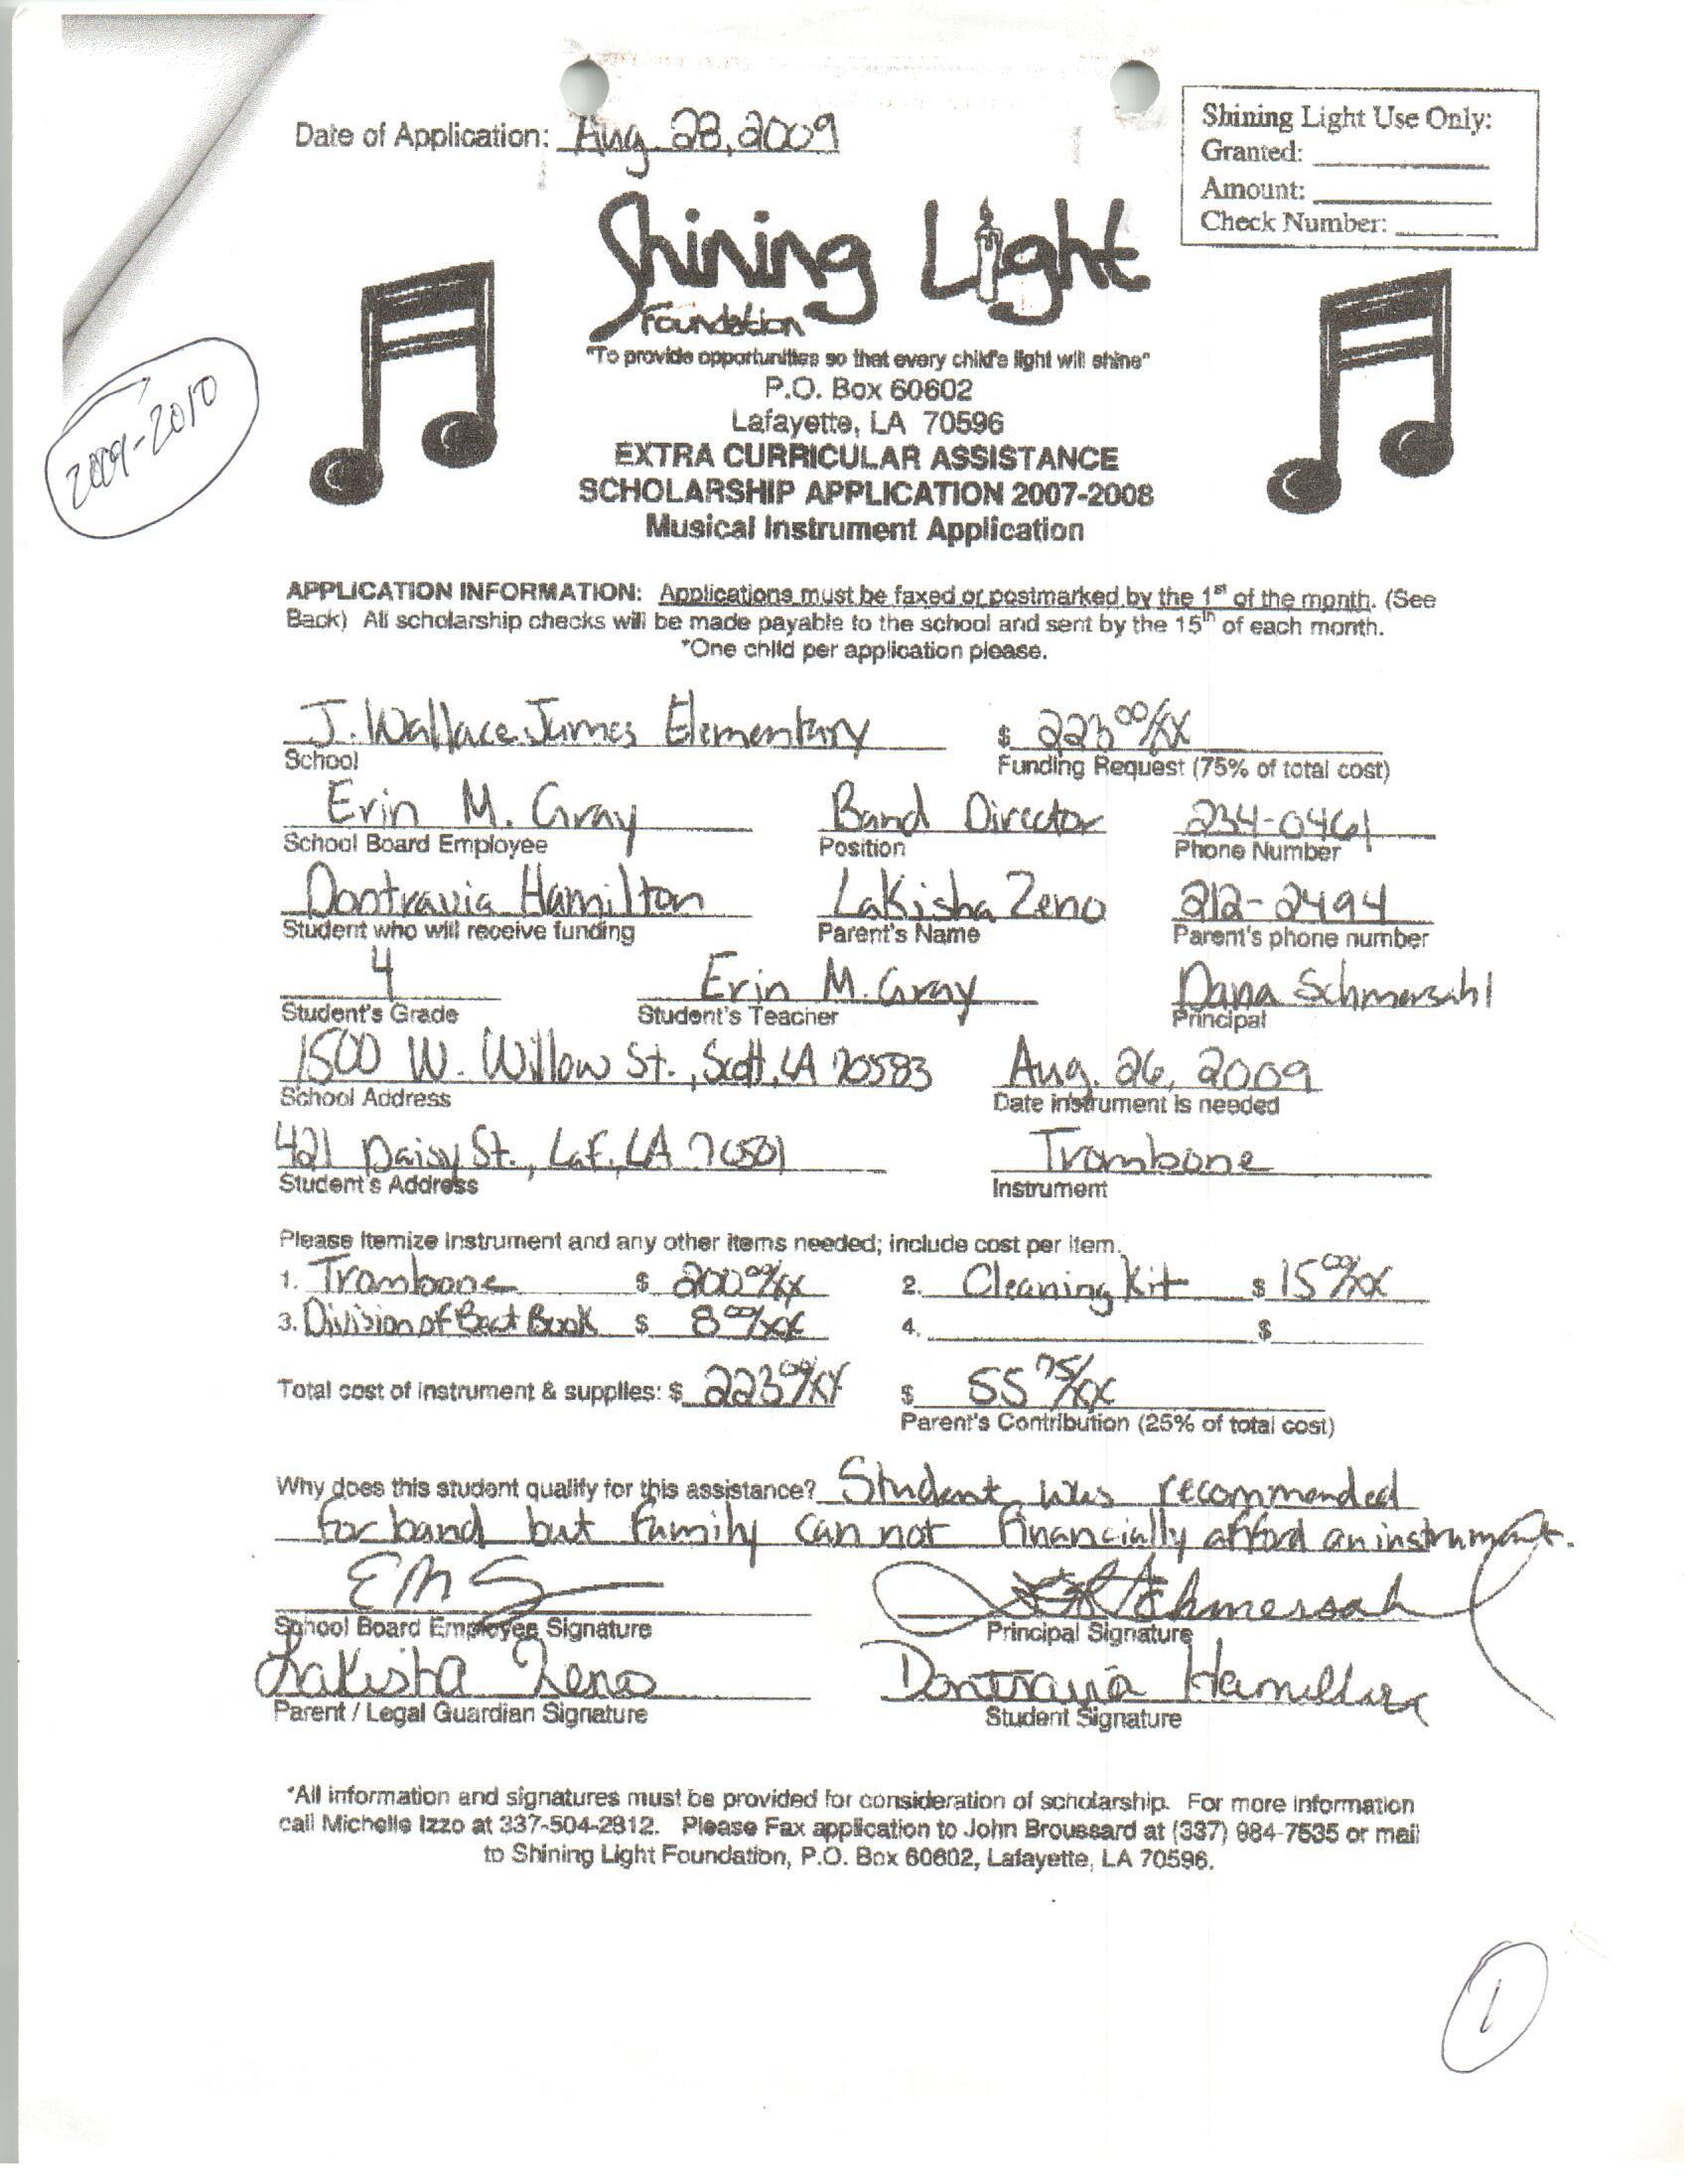 Shining Light Use Only:
Date of Application: Aug. 28, 2009
Granted:
Amount:
Check Number:
Shining Light
Foundation
"To provide opportunities so that every child's light will shine"
P.O. Box 60602
Lafayette, LA 70596
2009-2010
EXTRA CURRICULAR ASSISTANCE
SCHOLARSHIP APPLICATION 2007-2008
Musical Instrument Application
APPLICATION INFORMATION: Applications must be faxed or postmarked by the 1st of the month. (See
Back) All scholarship checks will be made payable to the school and sent by the 15th of each month.
*One child per application please.
J. Wallace James Elementary $ 223 00/xx
School Funding Request (75% of total cost)
Erin M. Gray Band Director 234-0461
School Board Employee Position Phone Number
Dontravia Hamilton LaKisha Zeno 212-2494
Student who will receive funding Parent's Name Parent's phone number
4 Erin M. Gray Dana Schmersahl
Student's Grade Student's Teacher Principal
1500 W. Willow St., Scott, LA 70583 Aug. 26, 2009
School Address Date instrument is needed
421 Daisy St., Laf., LA 70501 Trombone
Student's Address Instrument
Please itemize instrument and any other items needed; include cost per item.
1. Trombone $ 200 00/xx 2. Cleaning Kit $ 15 00/xx
3. Division of Beat Book $ 8 00/xx 4. $
Total cost of instrument & supplies: $ 223 00/xx $ 55 75/xx
Parent's Contribution (25% of total cost)
Why does this student qualify for this assistance? Student was recommended
for band but family can not financially afford an instrument.
EMG Schmersahl
School Board Employee Signature Principal Signature
Lakisha Zeno Dontravia Hamilton
Parent / Legal Guardian Signature Student Signature
*All information and signatures must be provided for consideration of scholarship. For more information
call Michelle Izzo at 337-504-2812. Please Fax application to John Broussard at (337) 984-7535 or mail
to Shining Light Foundation, P.O. Box 60602, Lafayette, LA 70596.
1